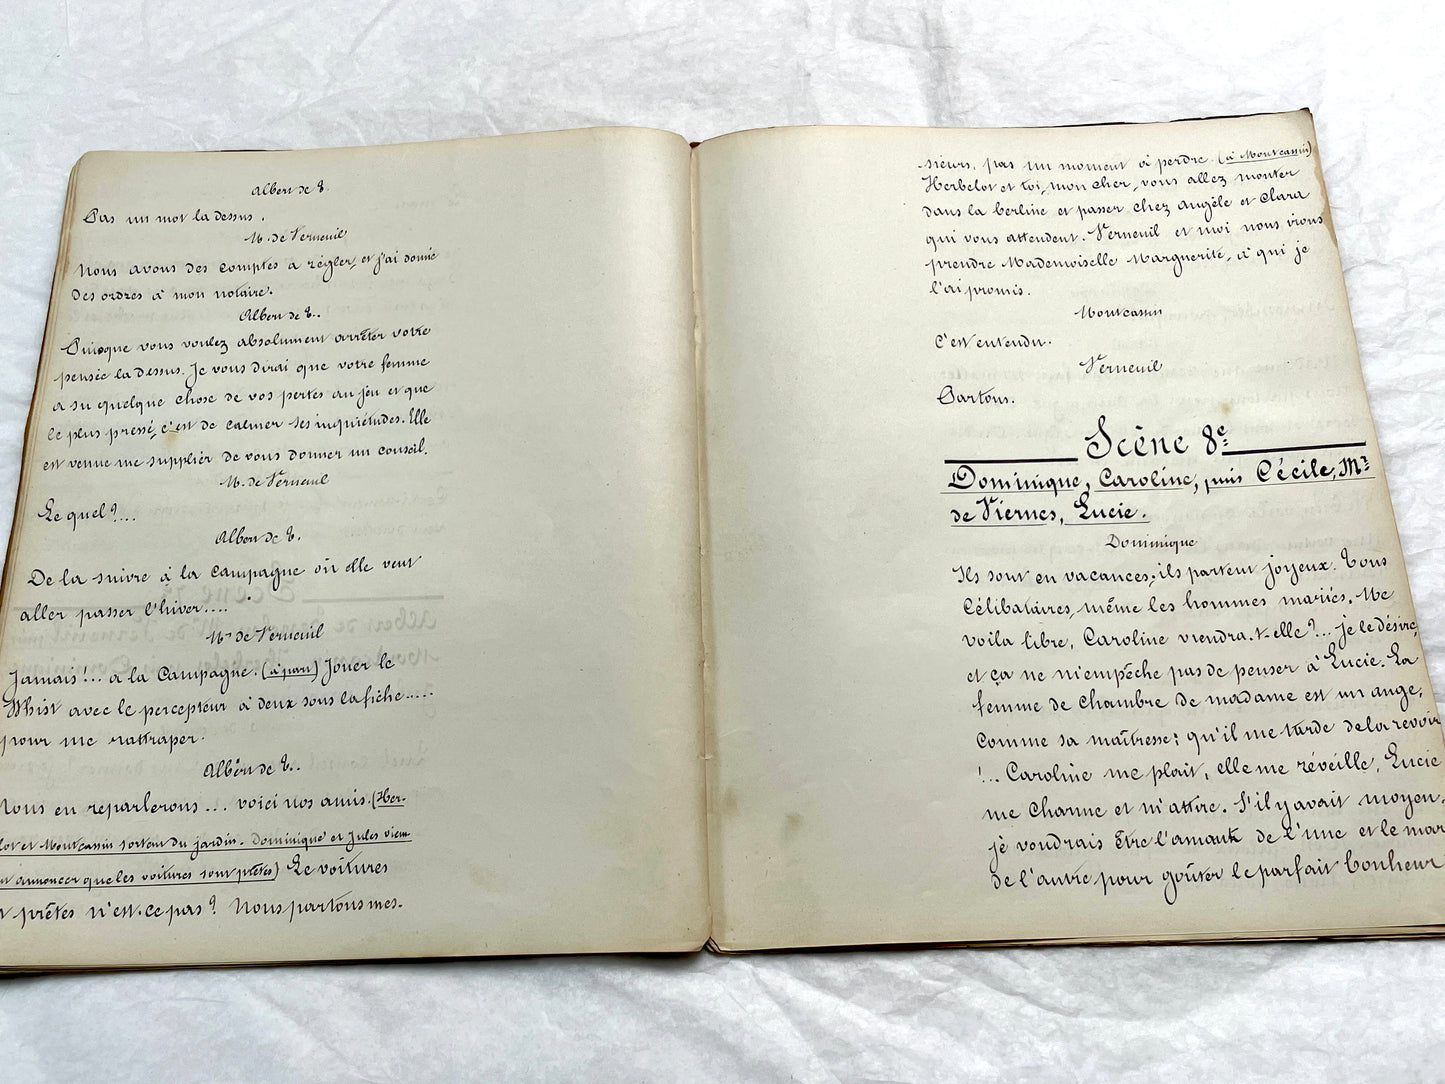 Albert de E.
Pas un mot la dessus.
M. de Verneuil
Nous avons des comptes a régler, et j'ai donné
des ordres à mon notaire.
Albert de E..
Puisque vous voulez absolument arrêter votre
pensée la dessus. Je vous dirai que votre femme
a su quelque chose de vos pertes au jeu et que
le plus pressé, c'est de calmer ses inquiétudes. Elle
est venue me supplier de vous donner un conseil.
M. de Verneuil
Le quel?....
Albert de E.
De la suivre à la campagne où elle veut
aller passer l'hiver....
Mr de Verneuil
Jamais!... à la Campagne. (à part) Jouer le
Whist avec le percepteur à deux sous la fiche.....
pour me rattraper.
Albert de E..
Nous en reparlerons... voici nos amis. (Her-
lot et Montcassin sortent du jardin. Dominique et Jules vien-
annoncer que les voitures sont prêtes) Le voitures
prêtes n'est-ce pas? Nous partons mes-
sieurs, pas un moment à perdre. (à Montcassin)
Herbelot et toi, mon cher, vous allez monter
dans la berline et passer chez Angèle et Clara
qui vous attendent. Verneuil et moi nous irons
prendre Mademoiselle Marguerite, à qui je
l'ai promis.
Montcassin
C'est entendu.
Verneuil
Partons.
Scène 8e
Dominique, Caroline, puis Cécile, Mr
de Viernes, Lucie.
Dominique
Ils sont en vacances; ils partent joyeux. Tous
Célibataires, même les hommes mariés. Me
voila libre, Caroline viendra-t-elle?... je le désire,
et ça ne m'empêche pas de penser à Lucie. La
femme de chambre de madame est un ange,
comme sa maîtresse; qu'il me tarde de la revoir
!... Caroline me plait, elle me réveille, Lucie
me charme et m'attire. S'il y avait moyen,
je voudrais être l'amant de l'une et le mar
de l'autre pour goûter le parfait bonheur